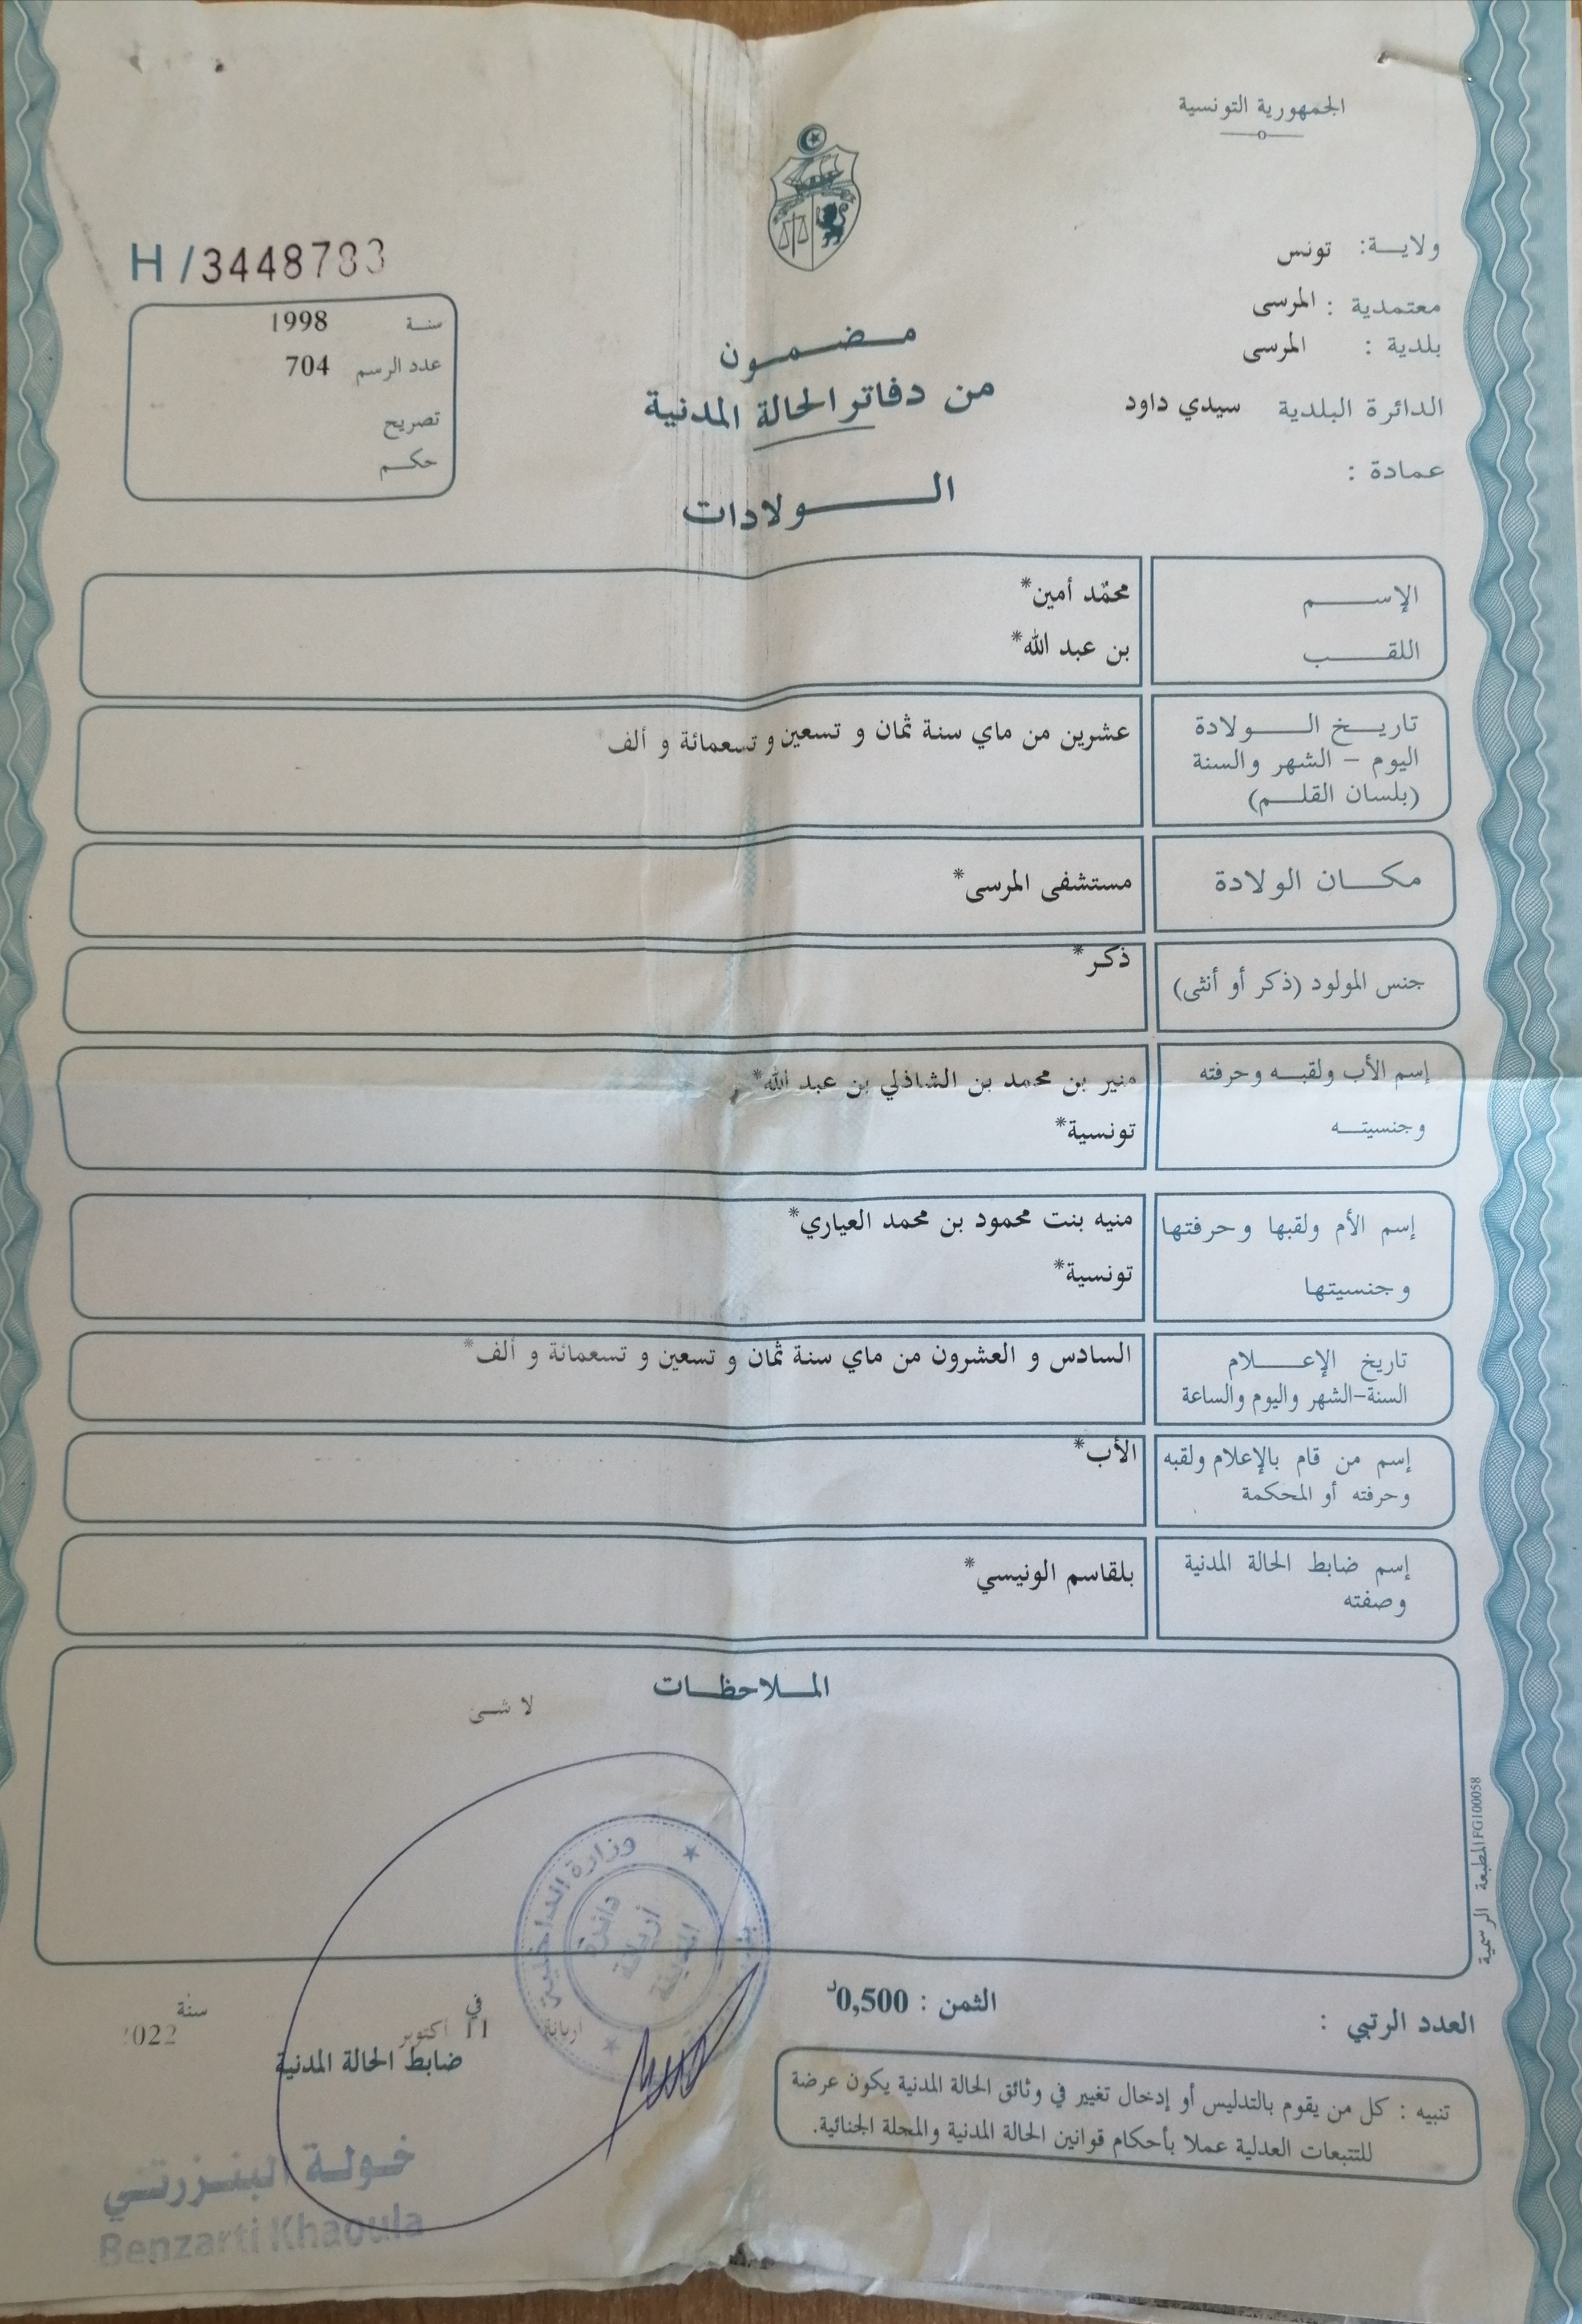 الجمهورية التونسية
ولايـــة: تونس
معتمدية : المرسى
بلدية : المرسى
الدائرة البلدية سيدي داود
عمادة :
H /3448783
سنـة 1998
عدد الرسم 704
تصريح
حكـــم
مـــضـــمـــون
من دفاتر الحالة المدنية
الـــــولادات
الإســـــم محمّد أمين*
اللقـــــب بن عبد الله*
تاريـــخ الـــــولادة عشرين من ماي سنة ثمان و تسعين و تسعمائة و ألف
اليوم – الشهر والسنة
(بلسان القلـــم)
مكـــان الولادة مستشفى المرسى*
جنس المولود (ذكر أو أنثى) ذكر*
إسم الأب ولقبـــه وحرفته منير بن محمد بن الشاذلي بن عبد الله*
وجنسيتـــه تونسية*
إسم الأم ولقبها وحرفتها منيه بنت محمود بن محمد العياري*
وجنسيتها تونسية*
تاريخ الإعـــــلام السادس و العشرون من ماي سنة ثمان و تسعين و تسعمائة و ألف*
السنة–الشهر واليوم والساعة
إسم من قام بالإعلام ولقبه الأب*
وحرفته أو المحكمة
إسم ضابط الحالة المدنية بلقاسم الونيسي*
وصفته
المـــلاحظـــات
لا شـى
وزارة الداخلية
دائرة
أريانة
المدينة
اريانة
المطبعة الرسمية FG100058
العدد الرتبي :
الثمن : 0,500د
في 11 أكتوبر سنة 2022
ضابط الحالة المدنية
تنبيه : كل من يقوم بالتدليس أو إدخال تغيير في وثائق الحالة المدنية يكون عرضة
للتتبعات العدلية عملا بأحكام قوانين الحالة المدنية والمجلة الجنائية.
خولـة البنـزرتـي
Benzarti Khaoula